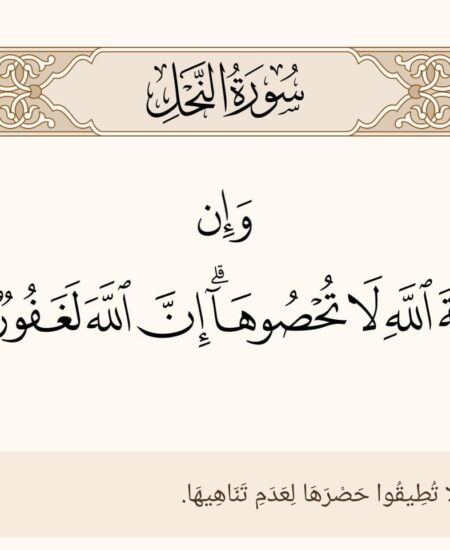 سُورَةُ النَّحْلِ
وَإِن
ٱللَّهِ لَا تُحْصُوهَآ ۗ إِنَّ ٱللَّهَ لَغَفُورٌ
تُطِيقُوا حَصْرَهَا لِعَدَمِ تَنَاهِيهَا.